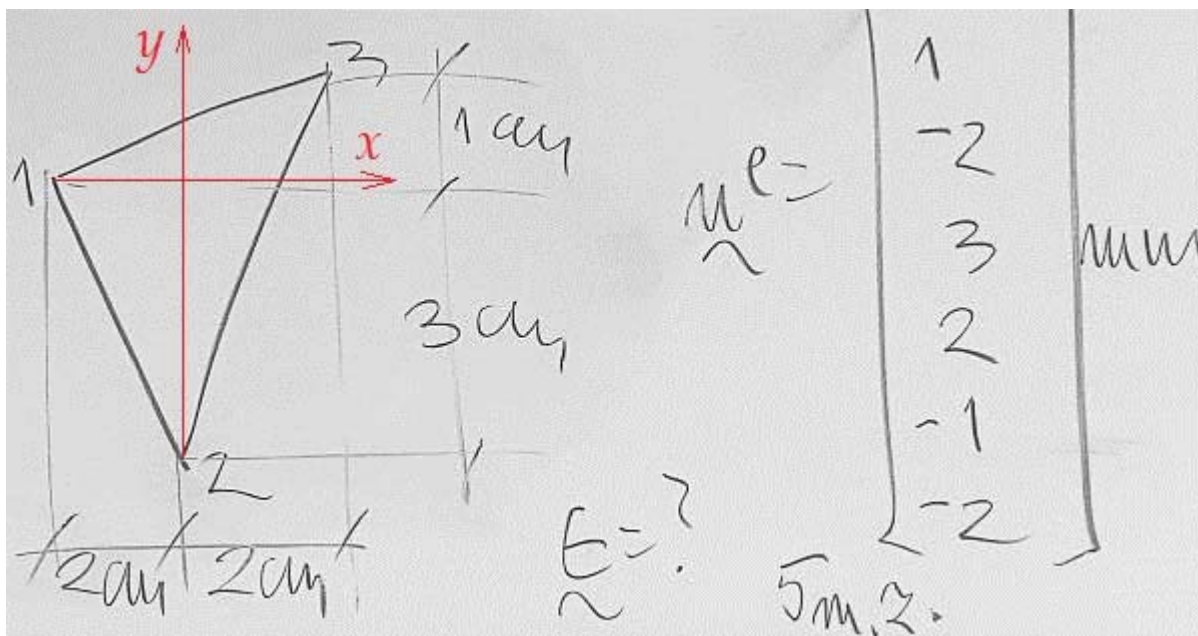 y
3
1 cm
x
1
3 cm
2
2cm 2cm
u^e =
1
-2
3
2
-1
-2
mm
ε = ?